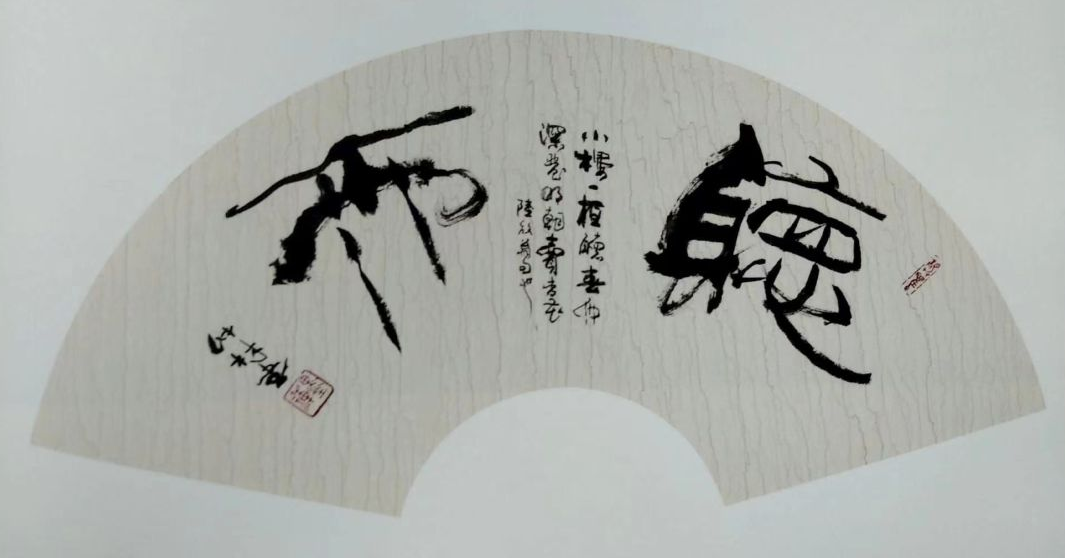 聽雨
小樓一夜聽春雨
深巷明朝賣杏花
陸放翁句也